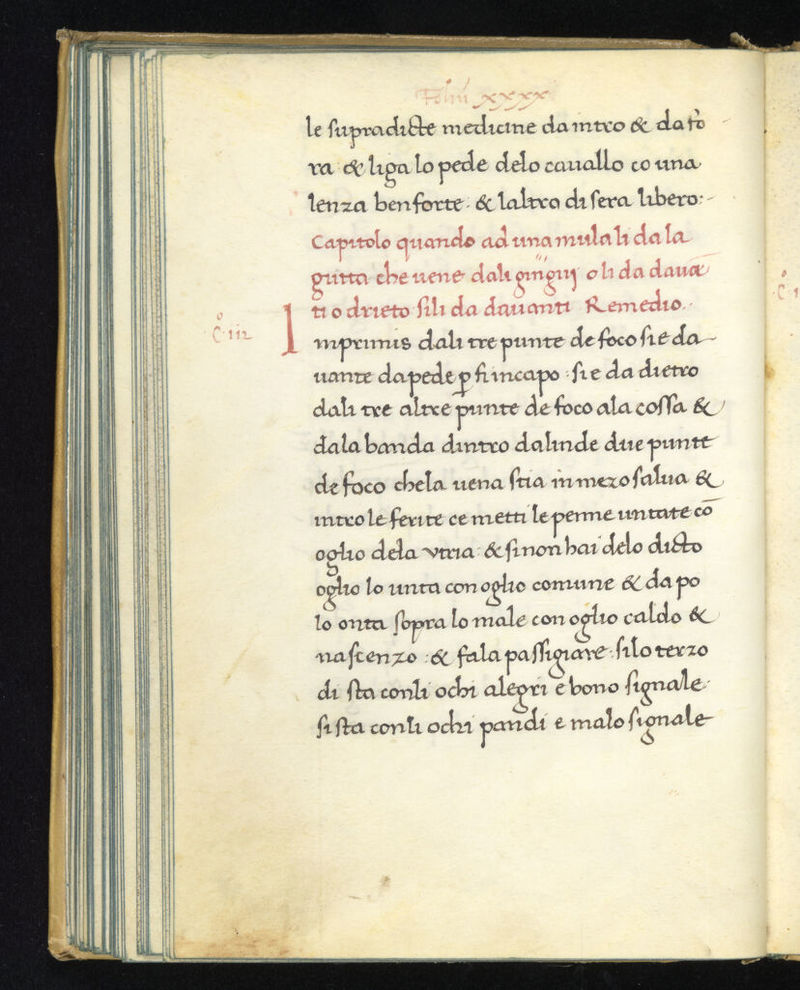 Foliũ xxxx
le supradicte medicine da intro & da fo
ra & liga lo pede delo cauallo co una
lenza ben forte · & laltro di sera libero:-
Capitolo quando ad una mula li da la
gutta che uene dali gingiuj o li da dauã
ti o drieto sili da dauanti Remedio.
C iii
Inprimis dali tre punte de foco sie da
uante da pede ꝑ fi incapo : sie da dietro
dali tre altre punte de foco ala cossa &
da la banda dintro dalinde due punte
de foco che la uena stia in mezo salua &
intro le ferite ce metti le penne untate cõ
oglio dela vtria : & si non hai delo dicto
oglio lo unta con oglio comune & da po
lo onta sopra lo male con oglio caldo &
nascenzo : & fala passigiare : si lo terzo
di sta conli ochi alegri e bono signale.
si sta conli ochi pandi e malo signale